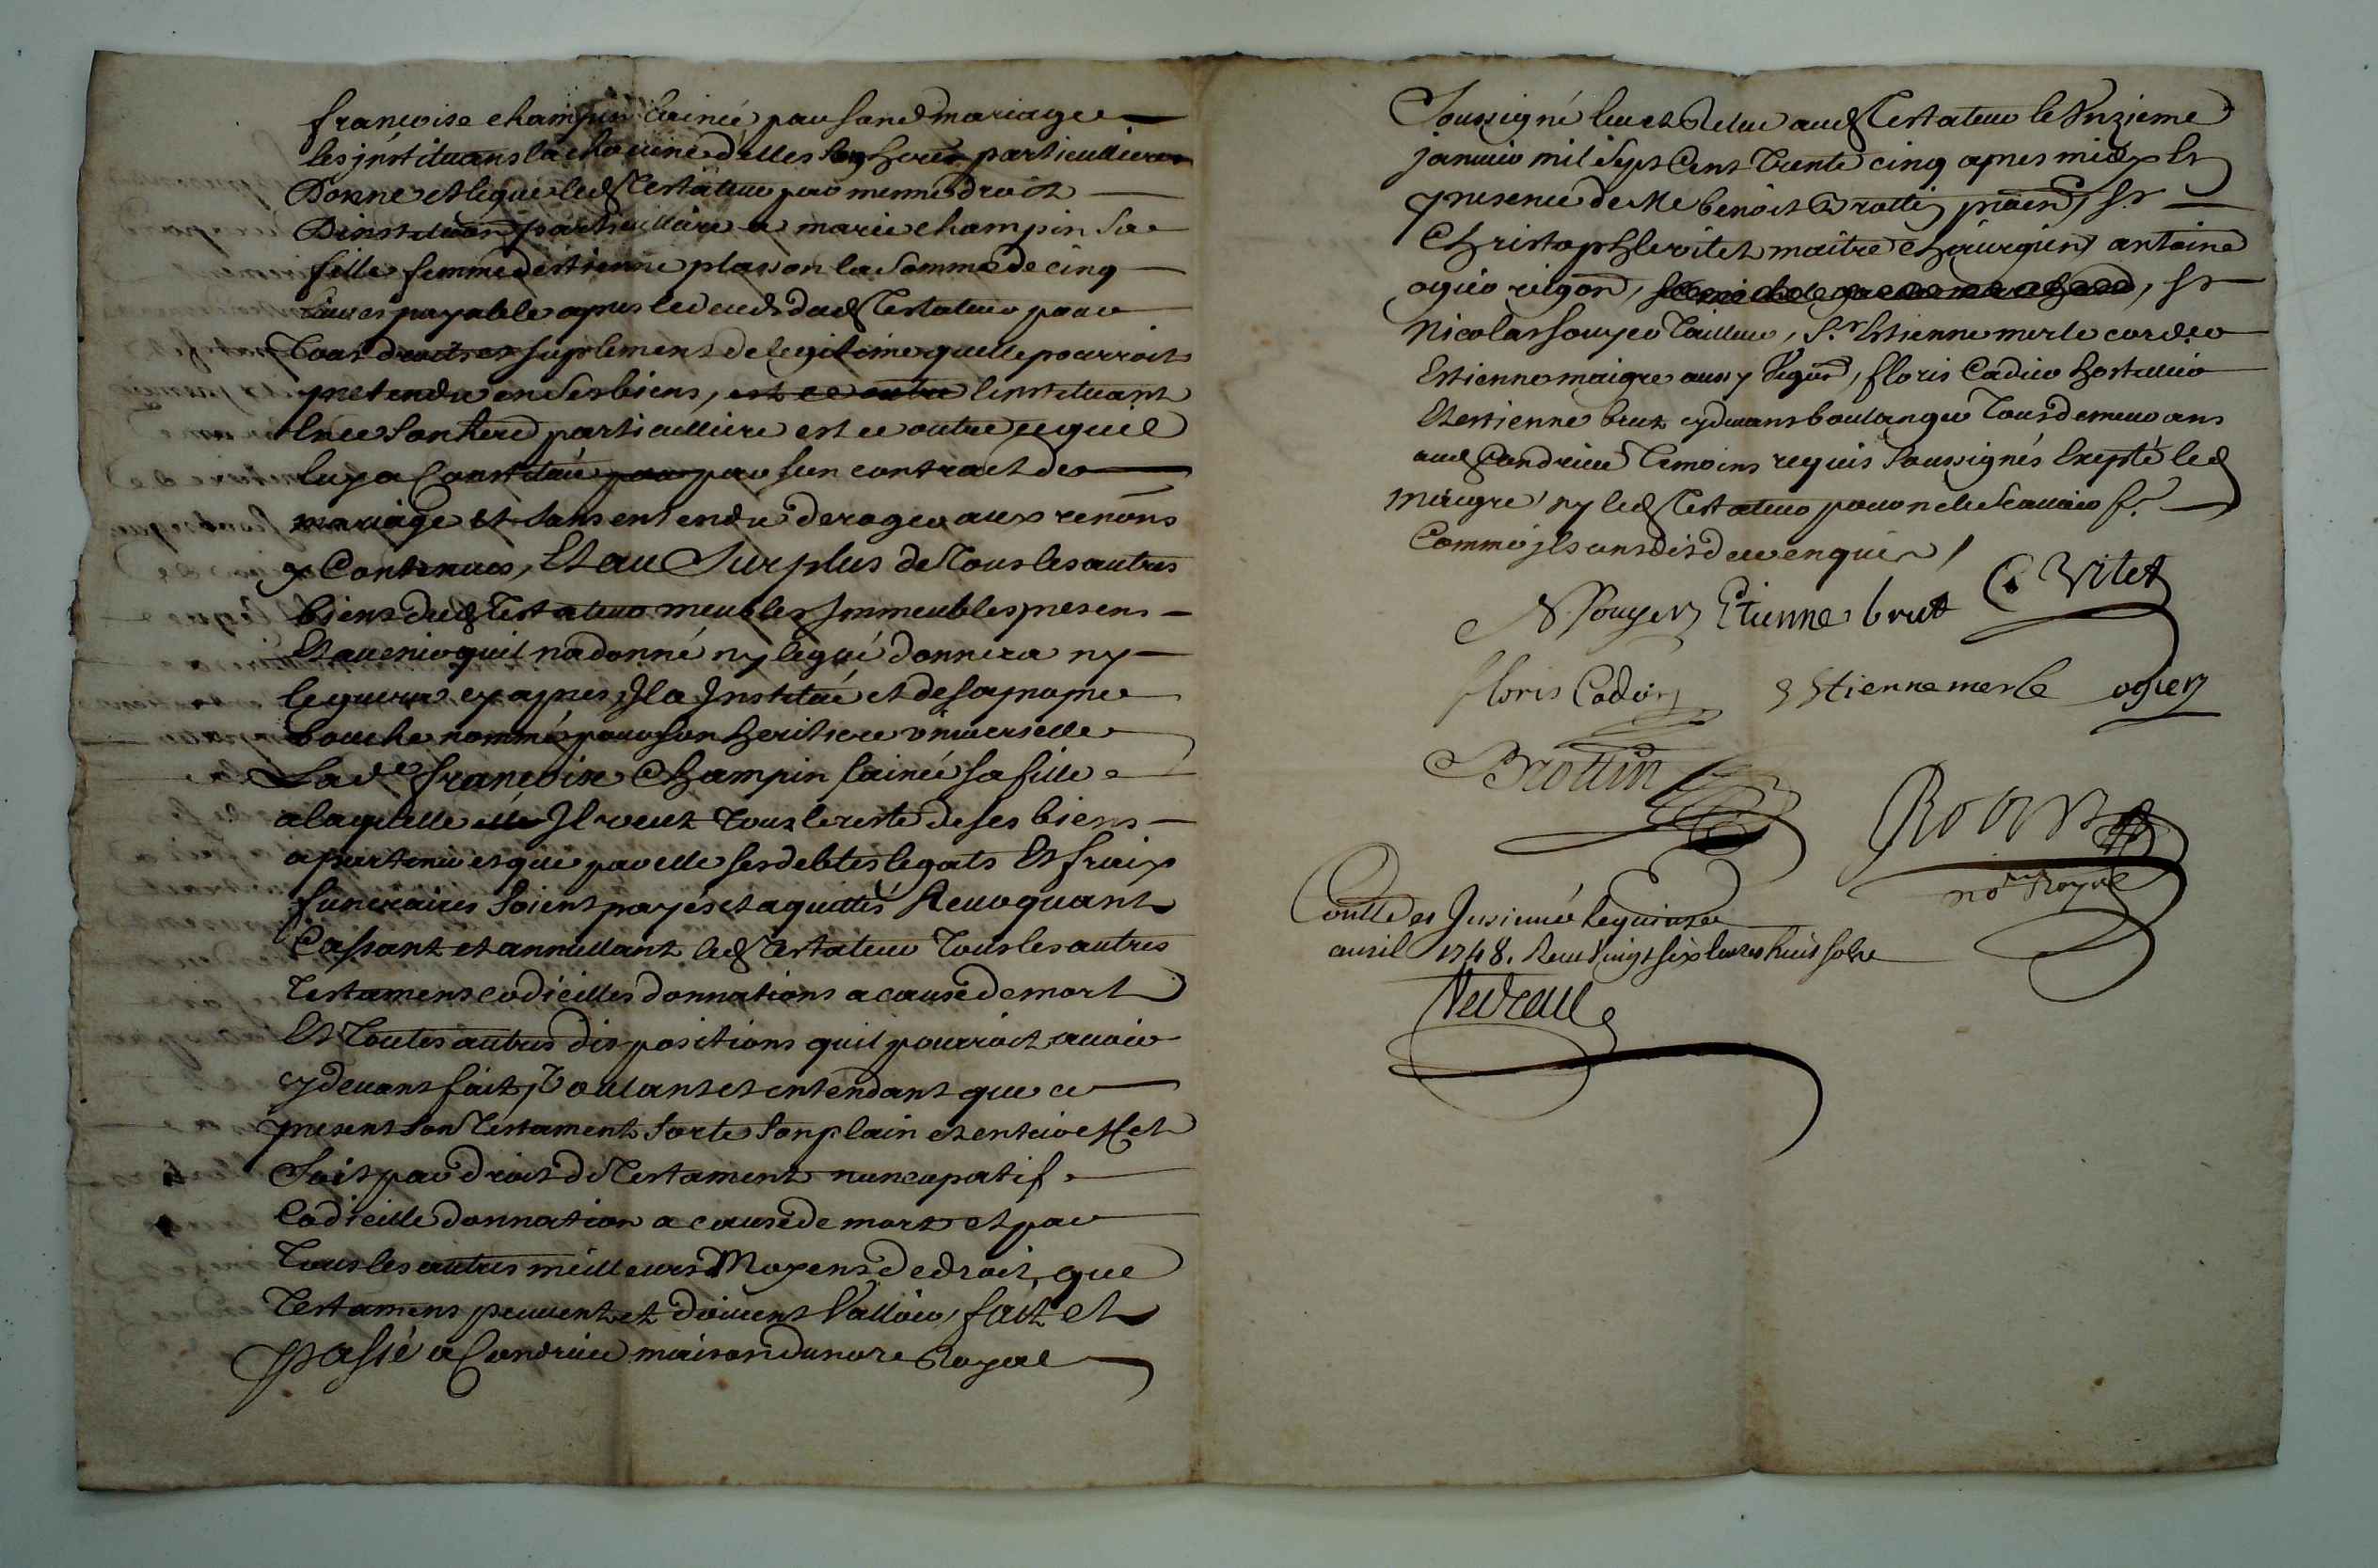 francoise champin lainée par son d mariage
les instituans la chacune d'elles ses heres particullieres
Donne et legue led testateur par meme droit
Dinstituon particulliere a marie champin sa
fille femme destienne plasson la somme de cinq
livres payable apres le deceds dud testateur pour
Tous droits et suplement de legitime quelle pourroit
pretendre en ses biens, est ce outre linstituant
en ce son here particulliere est ce outre ce quil
luy a Constitué pour par son contract de
mariage et sans entendre deroger aux renons
y Contenues, Et au Surplus de Tous les autres
biens dud Testateur meubles Immeubles presens
Et avenir quil na donné ny legué donnera ny
leguera cy apres Il a Institué et de sa propre
bouche nommé pour son heritiere universelle
Lad francoise Champin lainée sa fille
a laquelle Il veut Tout le reste de ses biens
apartenir et que par elle ses debtes legats Et fraix
funeraires Soient payés et aquittés Revoquant
Cassant et annullant led testateur Tous les autres
Testamens codicilles donnations a cause de mort
Et Toutes autres dispositions quil pourroit avoir
cy devant fait, Voulant et entendant que ce
present son Testament Sorte Son plain et entier effet
Soit par droit de Testament nuncupatif
Codicille donnation a cause de mort et par
Tous les autres meilleurs Moyens de droit que
Testamens peuvent et doivent Valloir, fait et
passé a Condrieu maison du nore Royal
Soussigné leu et Relue aud Testateur le Unzieme
janvier mil Sept Cent Trente cinq apres midy Et
presence de Me benoit Brottin praen, Sr
Christophle vitet maitre chirurgien, antoine
ogier vigon, Sr
Nicolas souyer Tailleur, Sr Estienne merle cordier
Estienne maigre aussy vigon, floris Cadier hostellier
Et estienne brut cydevant boulanger Tous demeurans
aud Condrieu Temoins requis Soussignés Exepté led
maigre ny led Testateur pour ne le Scavoir fe
Comme ils ont dit de ce enquis
N Souyer Etienne brut C Vitet
floris Cadier Estienne merle ogier
Brottin
nore Royal
Conlle et Insinué le quinze
avril 1748. Receu vingt six livres huit sols